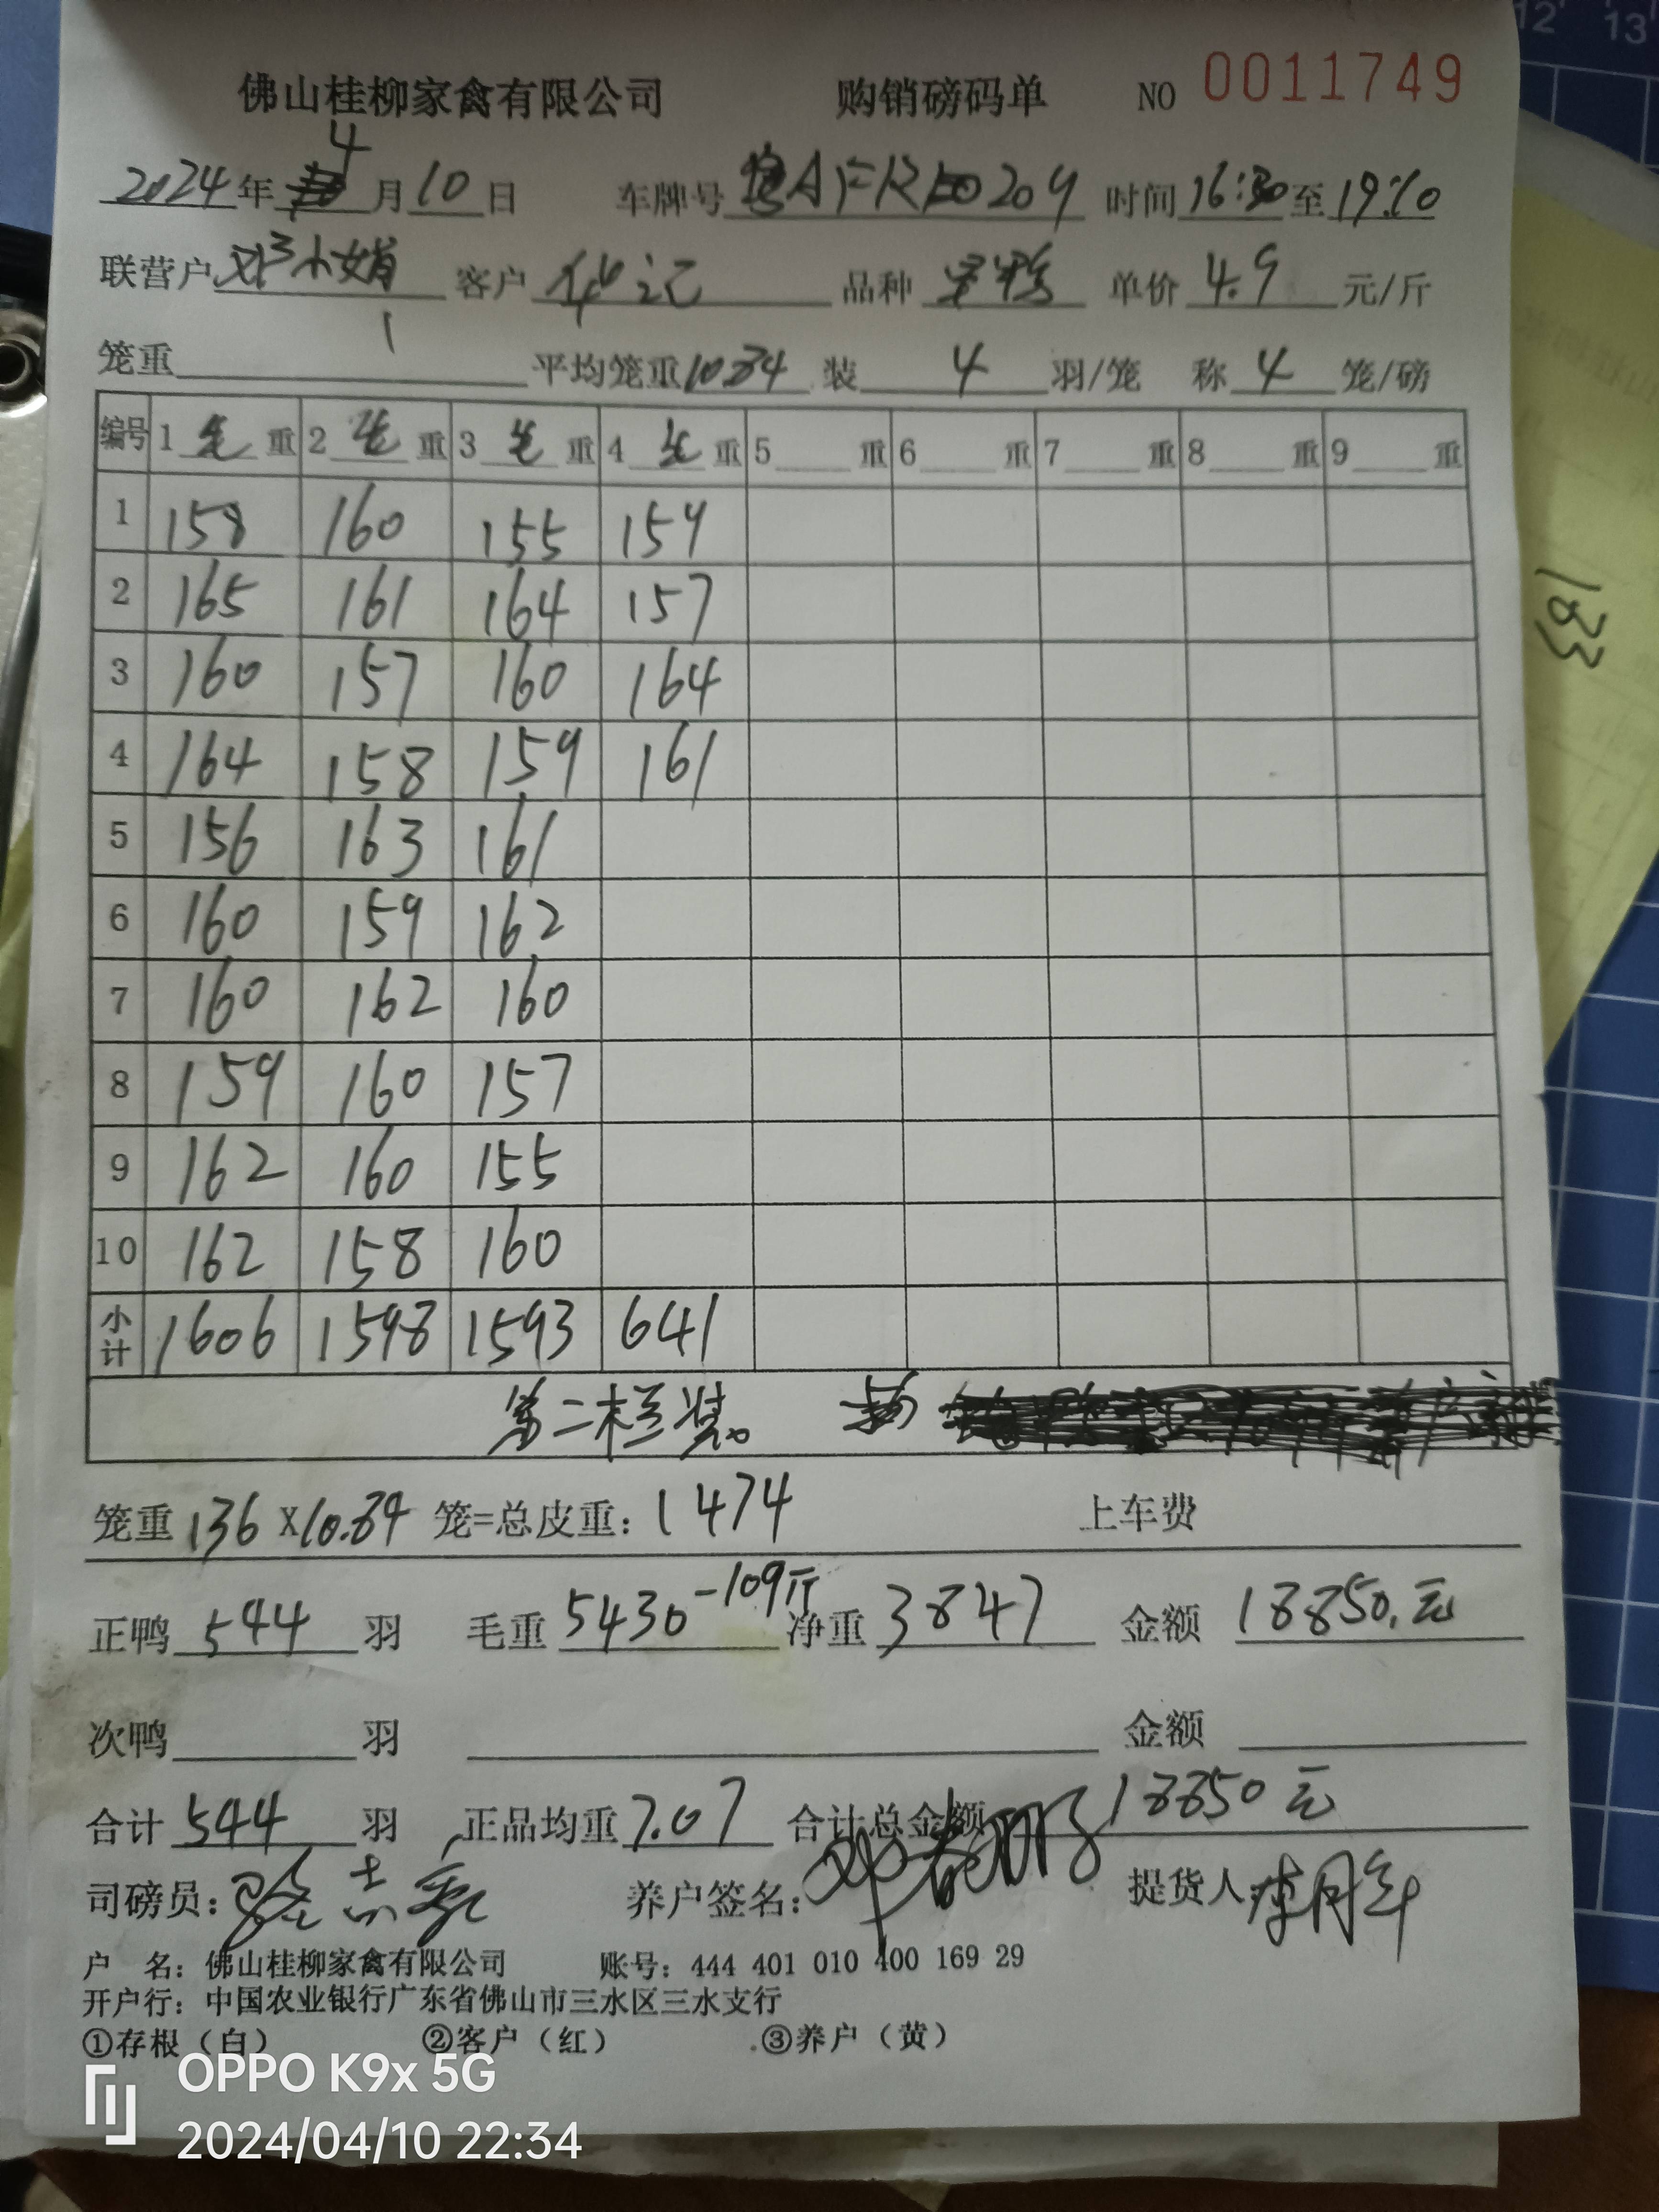 12 13
佛山桂柳家禽有限公司 购销磅码单 NO 0011749
2024年 4 月 10 日 车牌号 时间 16:30 至 19:10
联营户 邓小娟 客户 华记 品种 单价 4.9 元/斤
笼重 平均笼重 10.84 装 4 羽/笼 称 4 笼/磅
编号 1 毛 重 2 毛 重 3 毛 重 4 毛 重 5 重 6 重 7 重 8 重 9 重
1 158 160 155 159
2 165 161 164 157
3 160 157 160 164
4 164 158 159 161
5 156 163 161
6 160 159 162
7 160 162 160
8 159 160 157
9 162 160 155
10 162 158 160
小计 1606 1598 1593 641
第二栏装。
笼重 136 X 10.84 笼=总皮重: 1474 上车费
正鸭 544 羽 毛重 5430 -109斤 净重 3847 金额 18850.元
次鸭 羽 金额
合计 544 羽 正品均重 7.07 合计总金额 18850元
司磅员: 养户签名: 提货人:
户 名: 佛山桂柳家禽有限公司 账号: 444 401 010 400 169 29
开户行: 中国农业银行广东省佛山市三水区三水支行
①存根(白) ②客户(红) ③养户(黄)
133
OPPO K9x 5G
2024/04/10 22:34